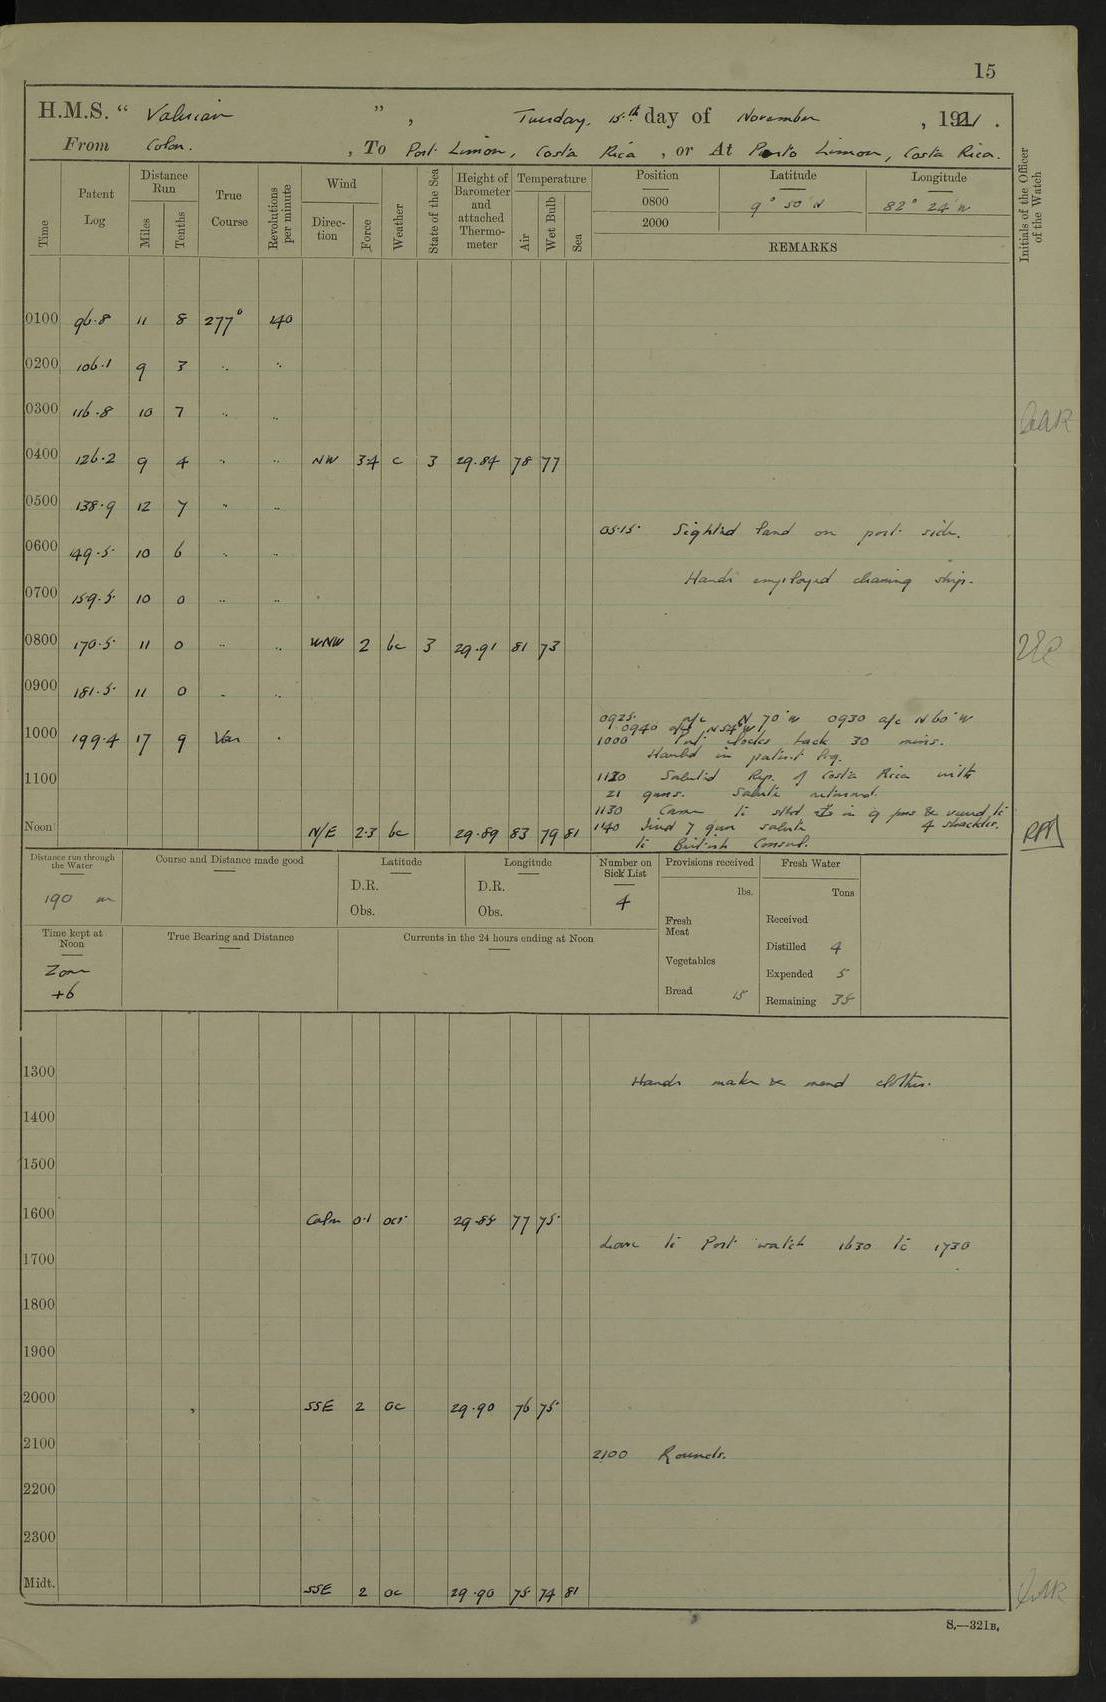 15
H.M.S. “ Valerian ”, Tuesday, 15th day of November, 1921.
From Colon. , To Port Limon, Costa Rica , or At Porto Limon, Costa Rica.
Time Patent Log Distance Run Miles Tenths True Course Revolutions per minute Wind Direction Force Weather State of the Sea Height of Barometer and attached Thermometer Temperature Air Wet Bulb Sea Position Latitude Longitude Initials of the Officer of the Watch
0800 9° 50' N 82° 24' W
2000
REMARKS
0100 96.8 11 8 277° 140
0200 106.1 9 3 .. ..
0300 116.8 10 7 .. ..
0400 126.2 9 4 .. .. NW 3.4 c 3 29.84 78 77
0500 138.9 12 7 .. ..
0515 Sighted land on port side.
0600 149.5 10 6 .. ..
Hands employed cleaning ship.
0700 159.5 10 0 .. ..
0800 170.5 11 0 .. .. WNW 2 bc 3 29.91 81 73
0900 181.5 11 0 .. ..
0925 a/c N 70° W 0930 a/c N 60° W
0940 a/c N 54° W
1000 199.4 17 9 Var .
1000 Put clocks back 30 mins.
Hauled in patent log.
1100
1120 Saluted Rep. of Costa Rica with
21 guns. Salute returned.
1130 Came to stbd in 9 fms & veered to
4 shackles.
Noon N/E 2.3 bc 29.89 83 79 81
1140 Fired 7 gun salute
to British Consul.
Distance run through the Water Course and Distance made good Latitude Longitude Number on Sick List Provisions received Fresh Water
190 m D.R. D.R. 4 lbs. Tons
Obs. Obs. Fresh Meat Received
Time kept at Noon True Bearing and Distance Currents in the 24 hours ending at Noon Vegetables Distilled 4
Zone Expended 5
+6 Bread 15 Remaining 35
1300 Hands make & mend clothes.
1400
1500
1600 Calm 0.1 29.85 77 75
Leave to Port watch 1630 to 1730
1700
1800
1900
2000 SSE 2 oc 29.90 76 75
2100
2100 Rounds.
2200
2300
Midt. SSE 2 oc 29.90 75 74 81
S.—321B.